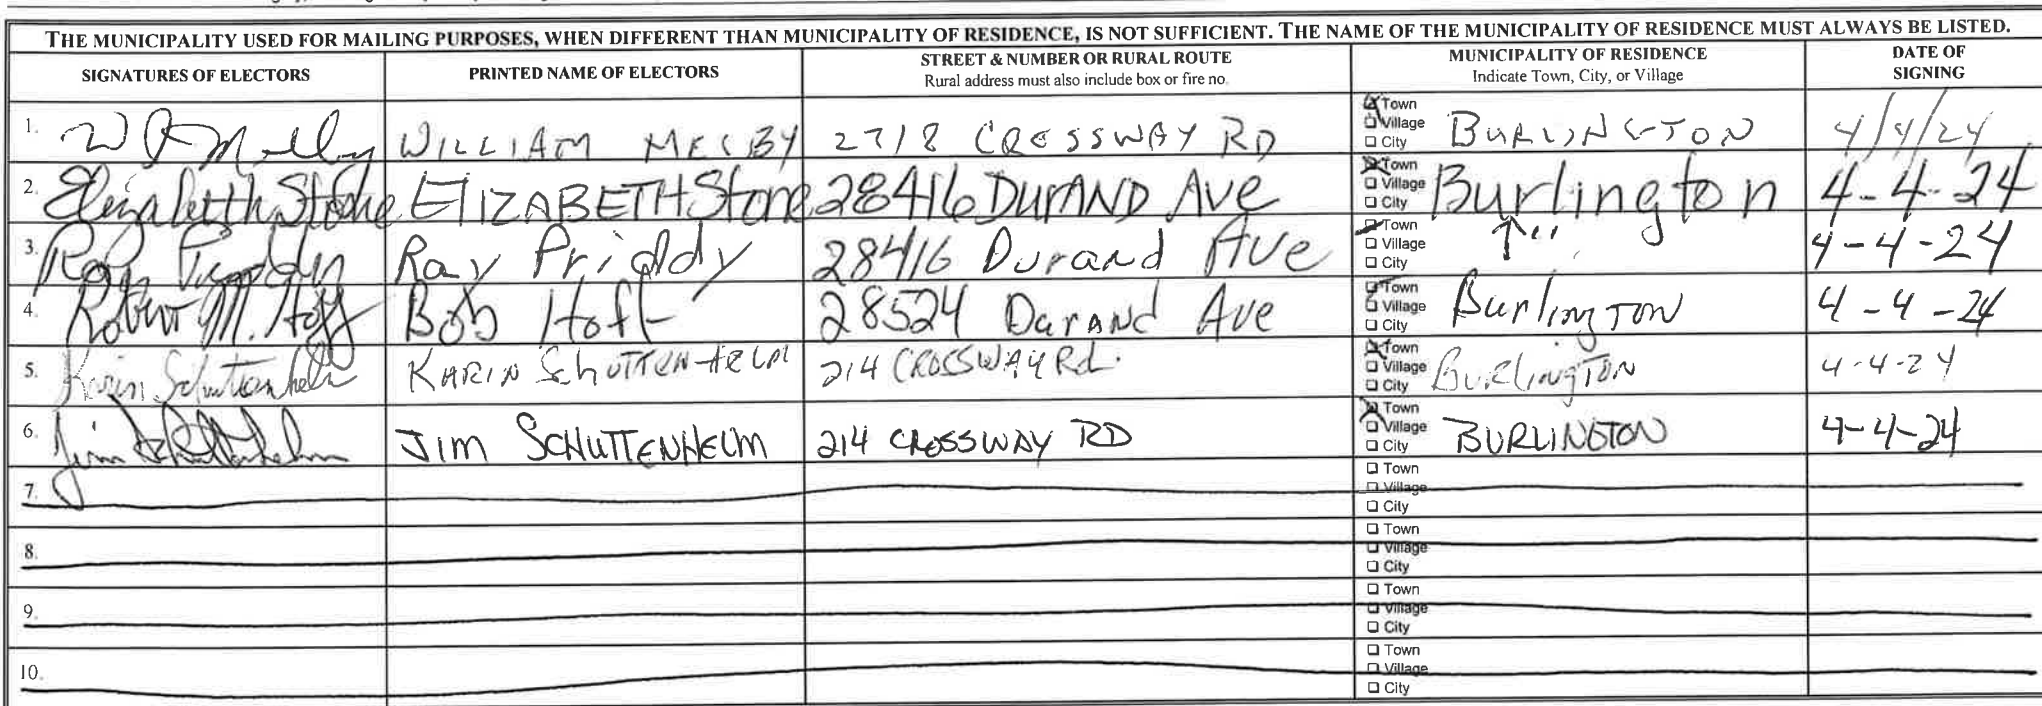 THE MUNICIPALITY USED FOR MAILING PURPOSES, WHEN DIFFERENT THAN MUNICIPALITY OF RESIDENCE, IS NOT SUFFICIENT. THE NAME OF THE MUNICIPALITY OF RESIDENCE MUST ALWAYS BE LISTED.
SIGNATURES OF ELECTORS PRINTED NAME OF ELECTORS STREET & NUMBER OR RURAL ROUTE Rural address must also include box or fire no. MUNICIPALITY OF RESIDENCE Indicate Town, City, or Village DATE OF SIGNING
1. W Melby WILLIAM MELBY 2718 CROSSWAY RD Town Village City BURLINGTON 4/4/24
2. Elizabeth Stone ELIZABETH Stone 28416 DURAND AVE Town Village City Burlington 4-4-24
3. Ray Priddy Ray Priddy 28416 Durand Ave Town Village City ↑ '' 4-4-24
4. Robert M. Hoff Bob Hoff 28524 Durand Ave Town Village City Burlington 4-4-24
5. Karin Schuttenhelm KARIN SchUTTENHELM 214 CROSSWAY Rd. Town Village City BURlingTON 4-4-24
6. Jim Schuttenhelm JIM SCHUTTENHELM 214 CROSSWAY RD Town Village City BURLINGTON 4-4-24
7. Town Village City
8. Town Village City
9. Town Village City
10. Town Village City